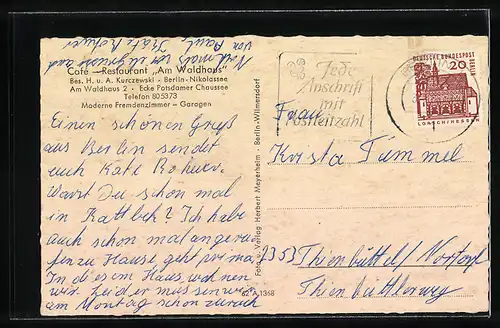 Nochmals vor
von Paul, Käte Rohwer
Café – Restaurant „Am Waldhaus"
Bes. H. u. A. Kurczewski - Berlin-Nikolassee
Am Waldhaus 2 - Ecke Potsdamer Chaussee
Telefon 805373
Moderne Fremdenzimmer – Garagen
Einen schönen Gruß
aus Berlin sendet
euch Kate Rohwer.
Warst Du schon mal
in Kattbek? Ich habe
auch schon mal angeru-
fen zu Hause, geht prima,
In diesem Haus, wohnen
wir. Leider müssen wir
am Montag schon zurück
Foto u. Verlag Herbert Meyerheim - Berlin-Wilmersdorf
62 A 1368
Jede
Anschrift
mit
Postleitzahl
DEUTSCHE BUNDESPOST
BERLIN
20
LORSCH/HESSEN
Frau
Krista Tummel
2353 Thienbüttel/Nortorf
Thienbüttlerweg